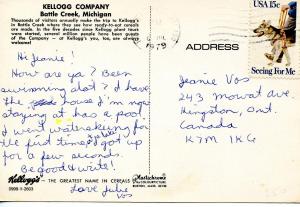 KELLOGG COMPANY
Battle Creek, Michigan
Thousands of visitors annually make the trip to Kellogg's
in Battle Creek where they see how ready-to-eat cereals
are made. In the five decades since Kellogg plant tours
were started, several million people have been guests
of the Company — at Kellogg's you, too, are always
welcome!
Hi Jeanie!
How are ya? Been
swimming alot? I have,
the house I'm now
staying at has a pool.
I went waterskiing for
the first time, & got up
for a few seconds.
Be good & write!
Love Julie
Vos
Kellogg's — THE GREATEST NAME IN CEREALS
1979
ADDRESS
USA 15c
Seeing For Me
Jeanie Vos
243 Mowat Ave.
Kingston, Ont
Canada
K7M 1K6